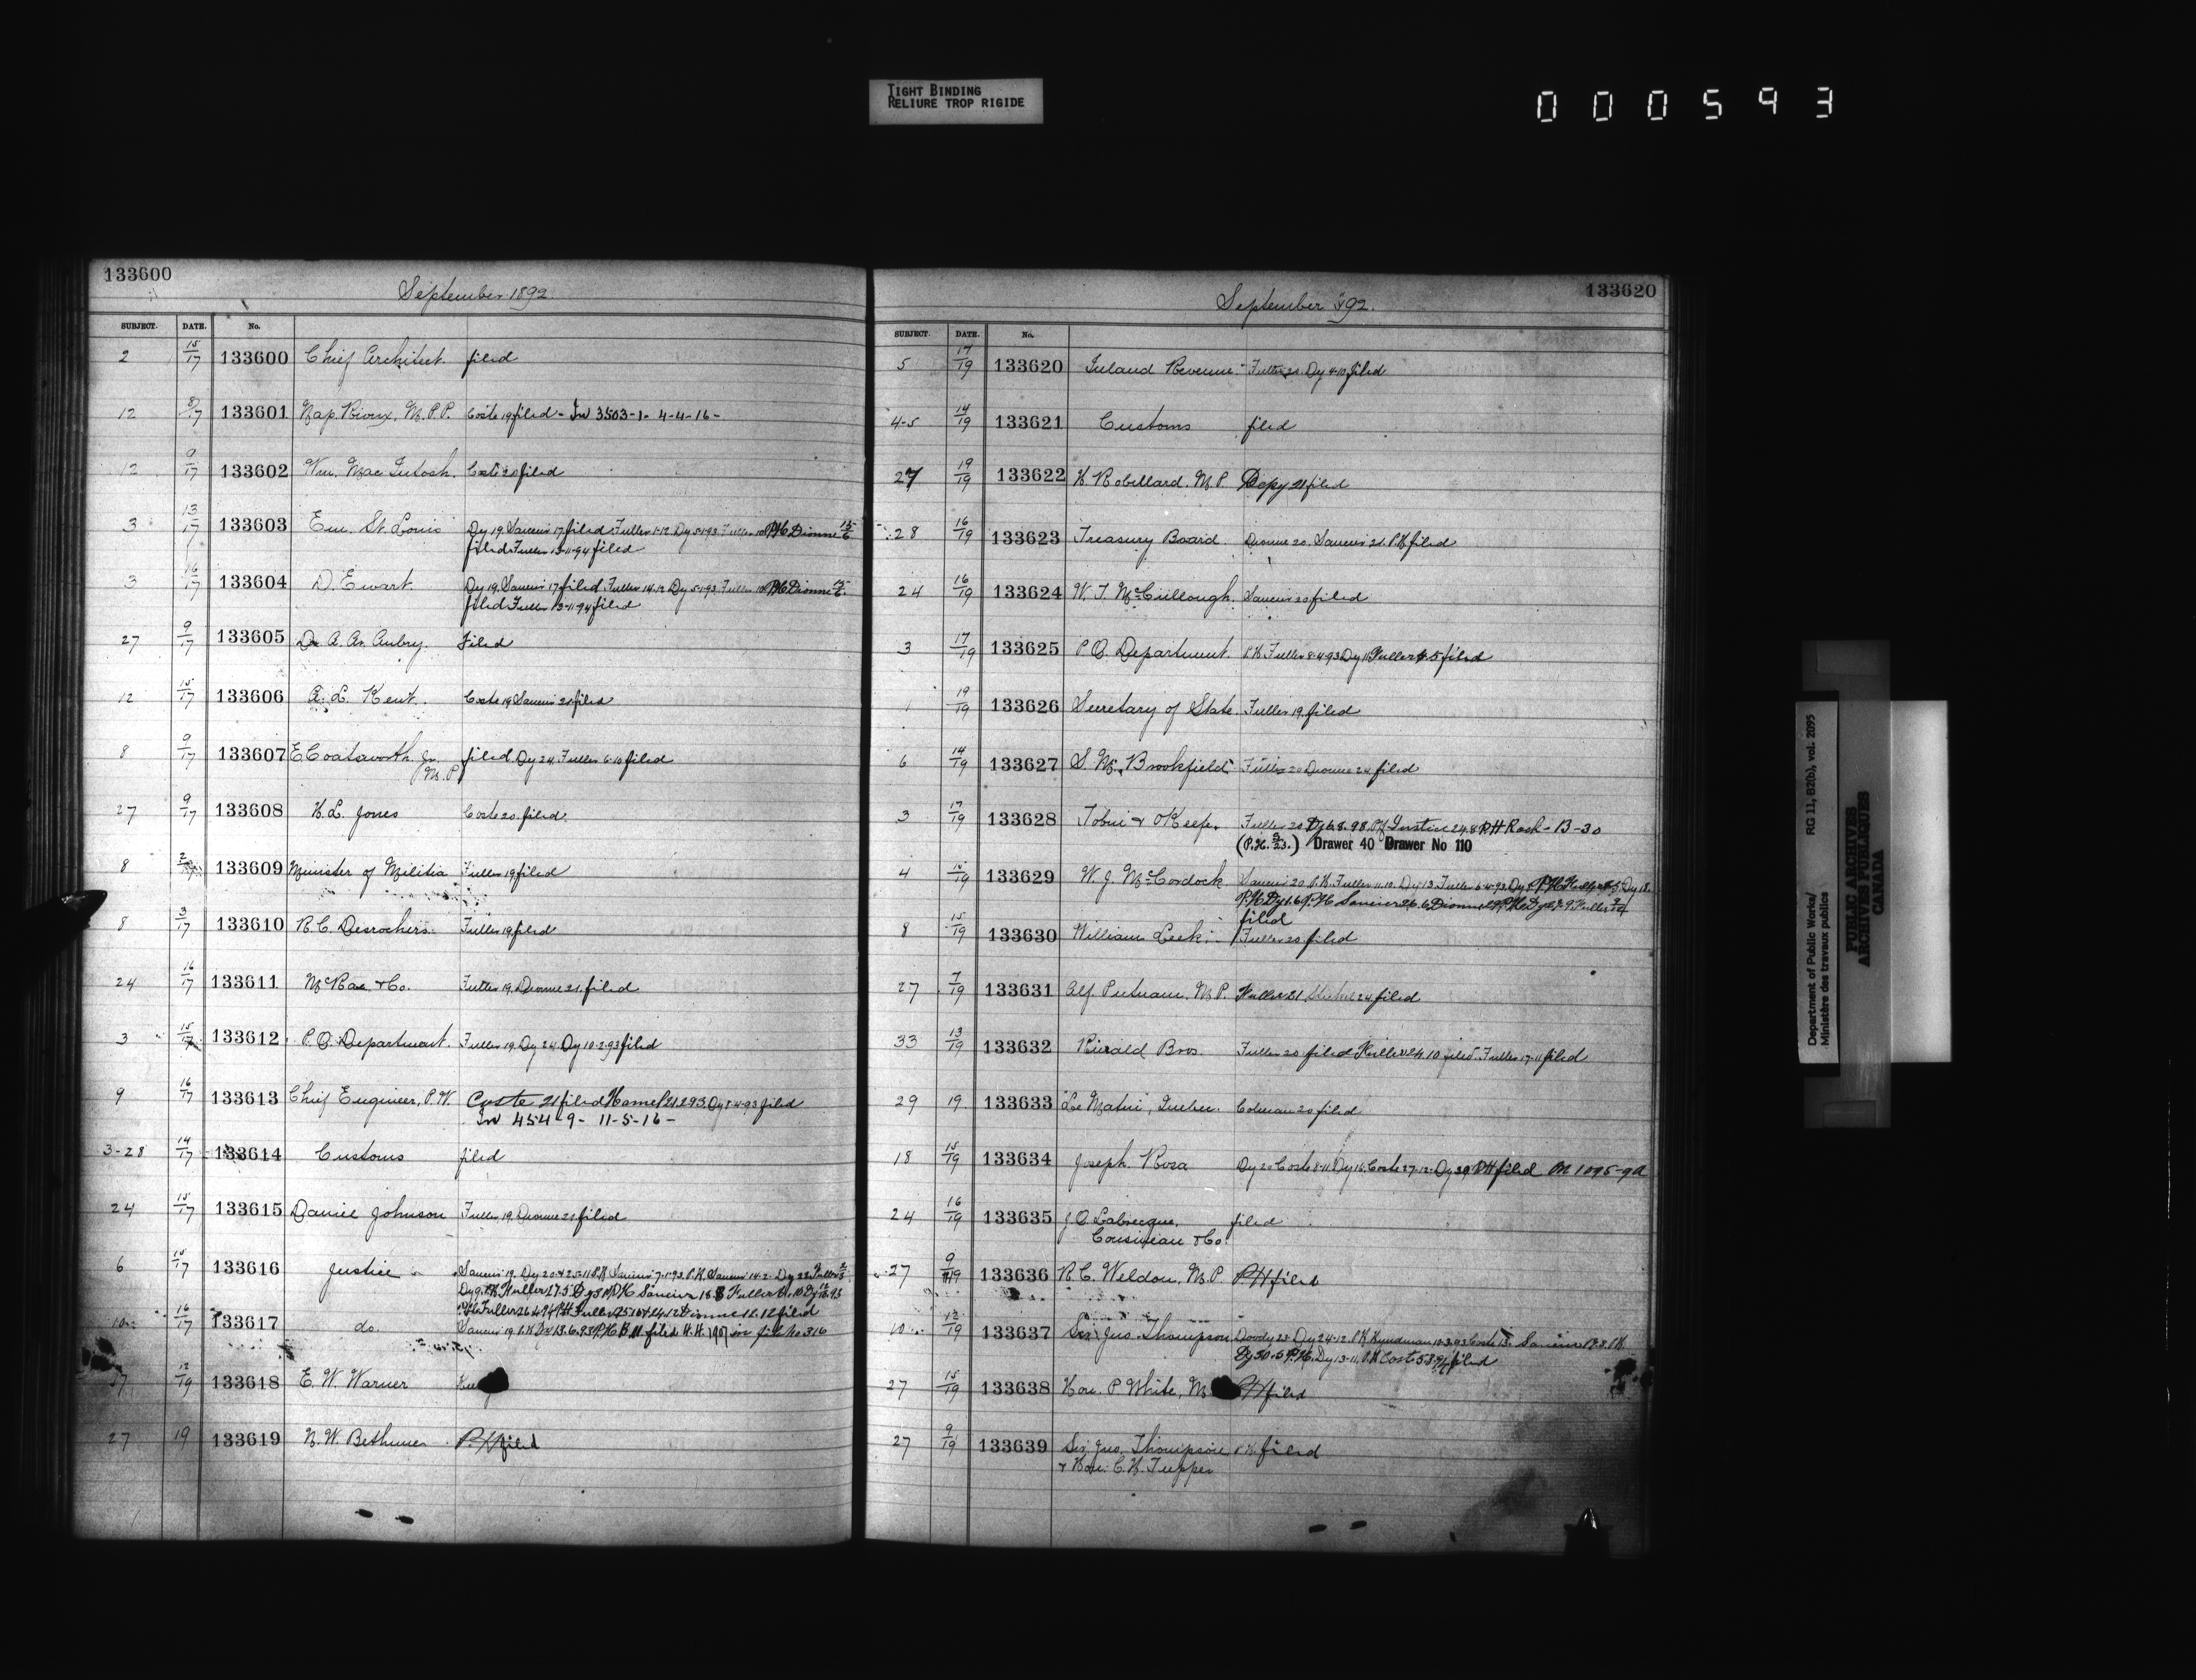 TIGHT BINDING
RELIURE TROP RIGIDE
000593
133600
September 1892.
SUBJECT. DATE. No.
2 15/17 133600 Chief Architect. filed
12 8/17 133601 Nap. Rioux, M.P.P. Coste 19 filed - In 3503-1- 4-4-16-
12 9/17 133602 Wm. MacIntosh. Coste 20 filed
3 13/17 133603 Em. St. Louis Dy 19. 17 filed. Fuller 1-12. Dy 5-1-93. Fuller 10 P.H. Dionne 15/6
filed Fuller 13-11-94 filed
3 16/17 133604 D. Ewart. Dy 19. 17 filed. Fuller 14-12. Dy 5-1-93. Fuller 10 P.H. Dionne
filed Fuller 13-11-94 filed
27 9/17 133605 Dr. Aubry. Filed
12 15/17 133606 A. L. Kent. Coste 19 filed
8 9/17 133607 E Coatsworth Jr. filed. Dy 24. Fuller 6-10 filed
M.P.
27 9/17 133608 H.L. Jones Coste 20. filed.
8 133609 Minister of Militia Fuller 19 filed
8 3/17 133610 R.C. Desrochers Fuller 19 filed
24 16/17 133611 McRae & Co. Fuller 19. Dionne 21. filed
3 15/17 133612 P.O. Department. Fuller 19. Dy 24. Dy 10-2-93 filed
9 16/17 133613 Chief Engineer, P.W. Coste 21 filed Hamel 21.2.93. Dy 8-4-93 filed
In 454-9- 11-5-16-
3-28 14/17 133614 Customs filed
24 15/17 133615 Daniel Johnson Fuller 19. Dionne 21 filed
6 15/17 133616 Justice
10 16/17 133617 do. filed
12/19 133618 E. W. Warner
27 19 133619 N. W. Bethune P.H. filed
133620
September 92.
SUBJECT. DATE. No.
5 17/19 133620 Inland Revenue. Fuller 20. Dy 4-10 filed
4-5 14/19 133621 Customs filed
27 19/19 133622 H. Robillard. M.P. 21 filed
28 16/19 133623 Treasury Board. Dionne 20. 21. P.H. filed
24 16/19 133624 W. T. McCullough. 20 filed
3 17/19 133625 P.O. Department. P.H. Fuller 8-4-93 Dy 11 Fuller 4.5 filed
1 19/19 133626 Secretary of State. Fuller 19. filed
6 14/19 133627 S. M. Brookfield Fuller 20 Dionne 24 filed
3 17/19 133628 Tobin & O'Keefe. Fuller 20 Dy 6.8.98. Justice 24.8 P.H. Rack-B-30
(P.H. 23.) Drawer 40 Drawer No 110
4 15/19 133629 W. J. McCordock
filed
8 15/19 133630 William Leek Fuller 20 filed
27 7/19 133631 Alf. Putnam. M.P. Fuller 21 24 filed
33 13/19 133632 Bros. Fuller 20 filed Fuller 24 10 filed. Fuller 17-11 filed
29 19. 133633 Le Matin, Quebec. 20 filed
18 15/19 133634 Joseph Rosa Dy 20 Coste 8-11 Dy 16. Coste 27-12. Dy 30 P.H. filed 1095-9A
24 16/19 133635 J.O. Labrecque, filed
Cousineau & Co.
27 9/19 133636 R.C. Weldon, M.P. P.H. filed
10 12/19 133637 Sir Jno. Thompson
filed
27 15/19 133638 Hon. P White, M P.H. filed
27 9/19 133639 Sir Jno. Thompson P.H. filed
& Hon. C.H. Tupper
Department of Public Works/ RG 11, B2(b), vol. 2095
Ministère des travaux publics
PUBLIC ARCHIVES
ARCHIVES PUBLIQUES
CANADA